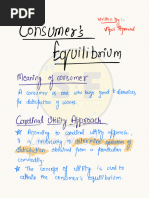 Consumer's
Written By:-
Equilibrium
Meaning of consumer
A consumer is one who buys good & services
for satisfaction of wants.
Cardinal Utility Approach
According to cardinal utility approach,
it is
satisfaction obtained from a particular
commodity.
The concept of utility is used to
the consumer's equilibrium.